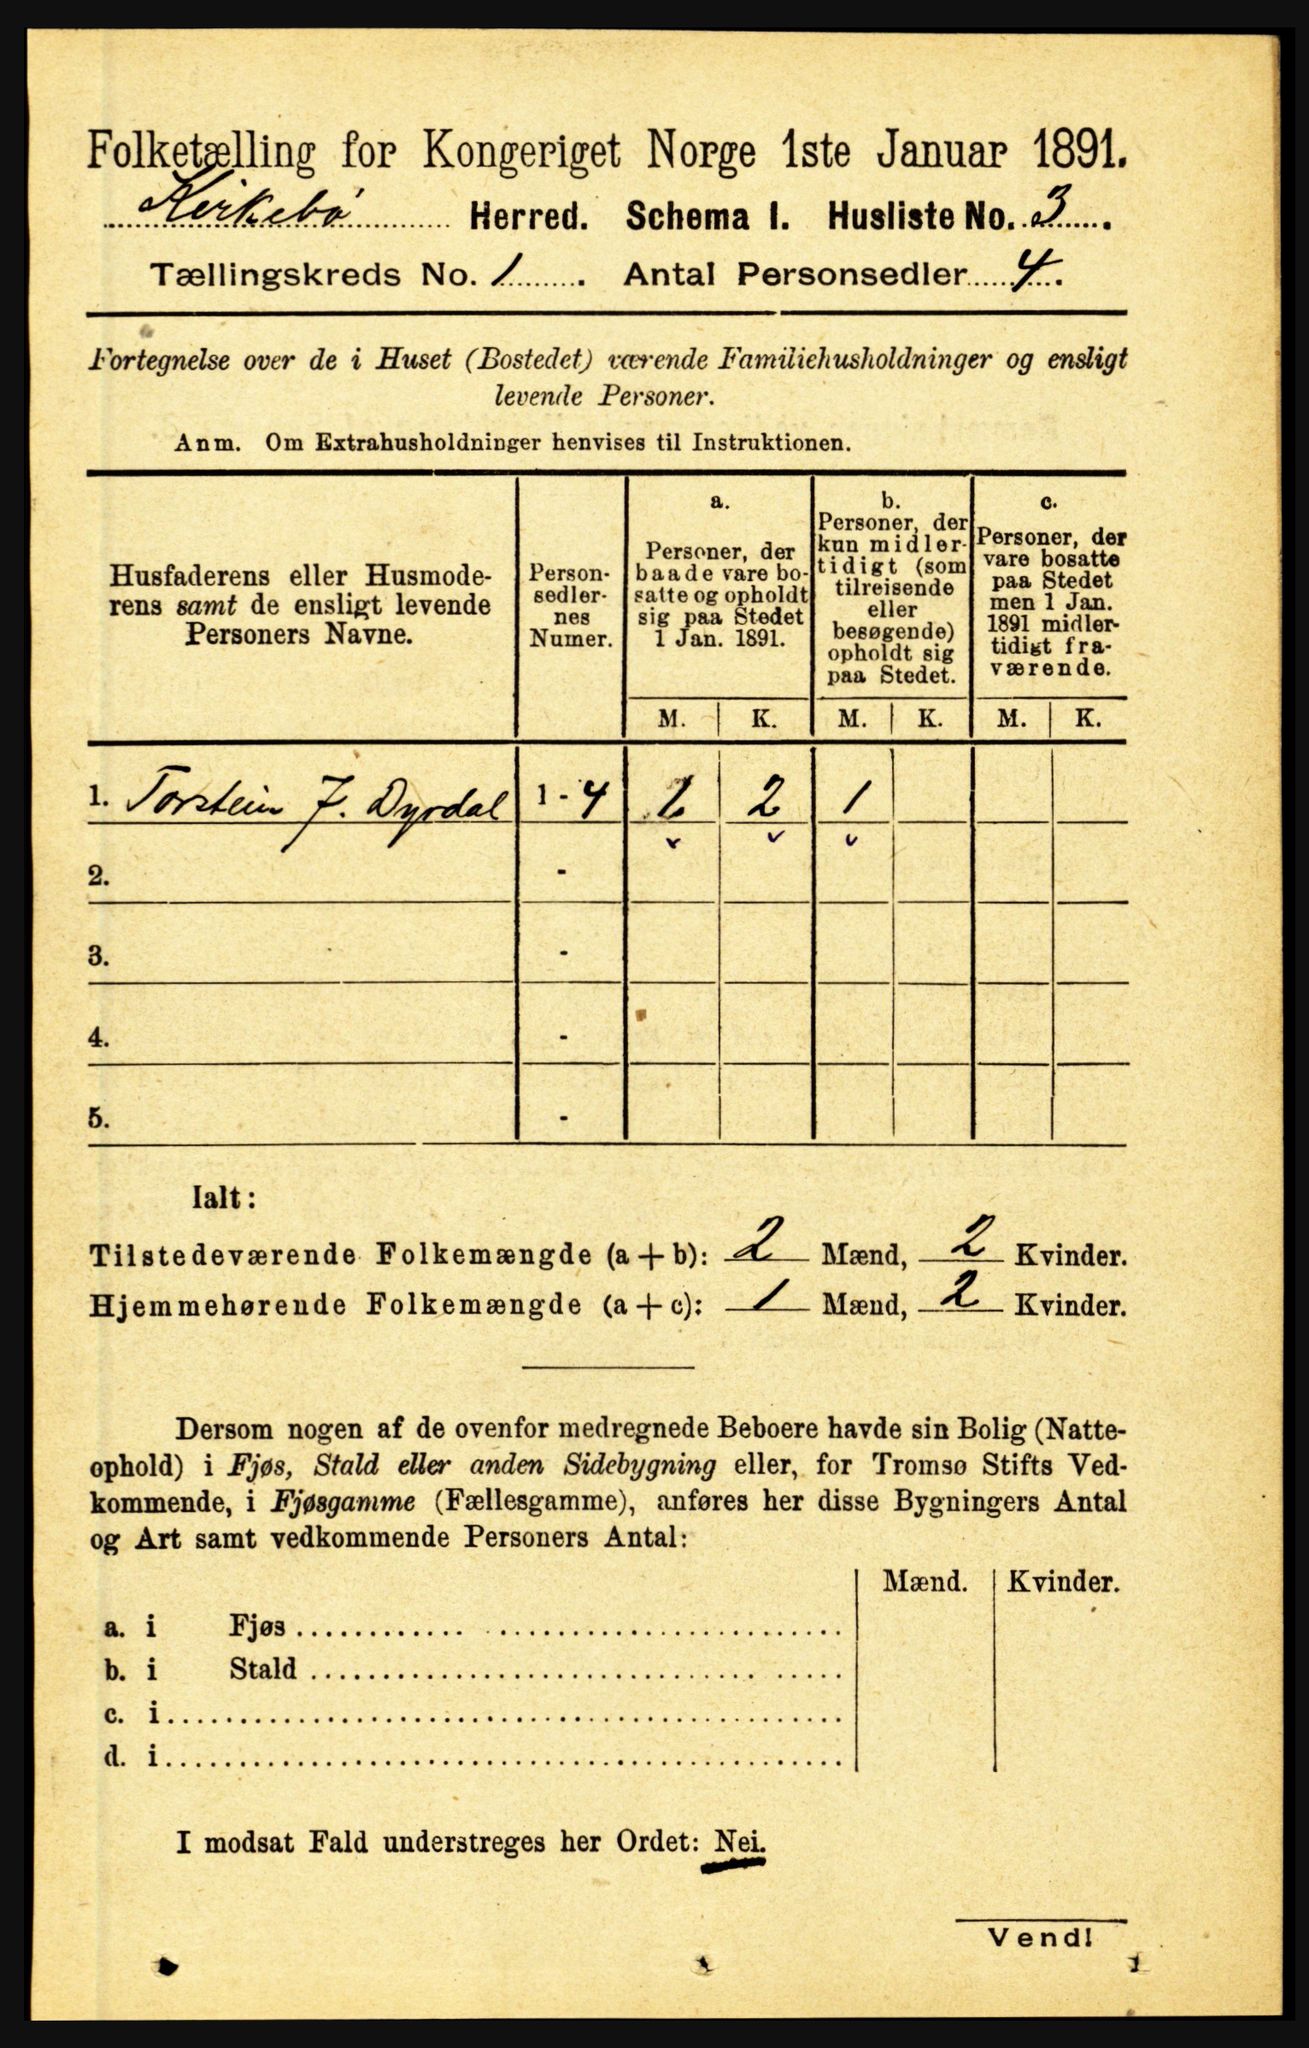 Folketælling for Kongeriget Norge 1ste Januar 1891.
Kirkebø Herred. Schema I. Husliste No. 3.
Tællingskreds No. 1. Antal Personsedler 4.
Fortegnelse over de i Huset (Bostedet) værende Familiehusholdninger og ensligt
levende Personer.
Anm. Om Extrahusholdninger henvises til Instruktionen.
Husfaderens eller Husmode-
rens samt de ensligt levende
Personers Navne.
Person-
sedler-
nes
Numer.
a.
Personer, der
baade vare bo-
satte og opholdt
sig paa Stedet
1 Jan. 1891.
b.
Personer, der
kun midler-
tidigt (som
tilreisende
eller
besøgende)
opholdt sig
paa Stedet.
c.
Personer, der
vare bosatte
paa Stedet
men 1 Jan.
1891 midler-
tidigt fra-
værende.
M. K. M. K. M. K.
1. Torstein J. Dyrdal 1 - 4 1 2 1
2. -
3. -
4. -
5. -
Ialt:
Tilstedeværende Folkemængde (a + b): 2 Mænd, 2 Kvinder.
Hjemmehørende Folkemængde (a + c): 1 Mænd, 2 Kvinder.
Dersom nogen af de ovenfor medregnede Beboere havde sin Bolig (Natte-
ophold) i Fjøs, Stald eller anden Sidebygning eller, for Tromsø Stifts Ved-
kommende, i Fjøsgamme (Fællesgamme), anføres her disse Bygningers Antal
og Art samt vedkommende Personers Antal:
Mænd. Kvinder.
a. i Fjøs
b. i Stald
c. i
d. i
I modsat Fald understreges her Ordet: Nei.
Vend!